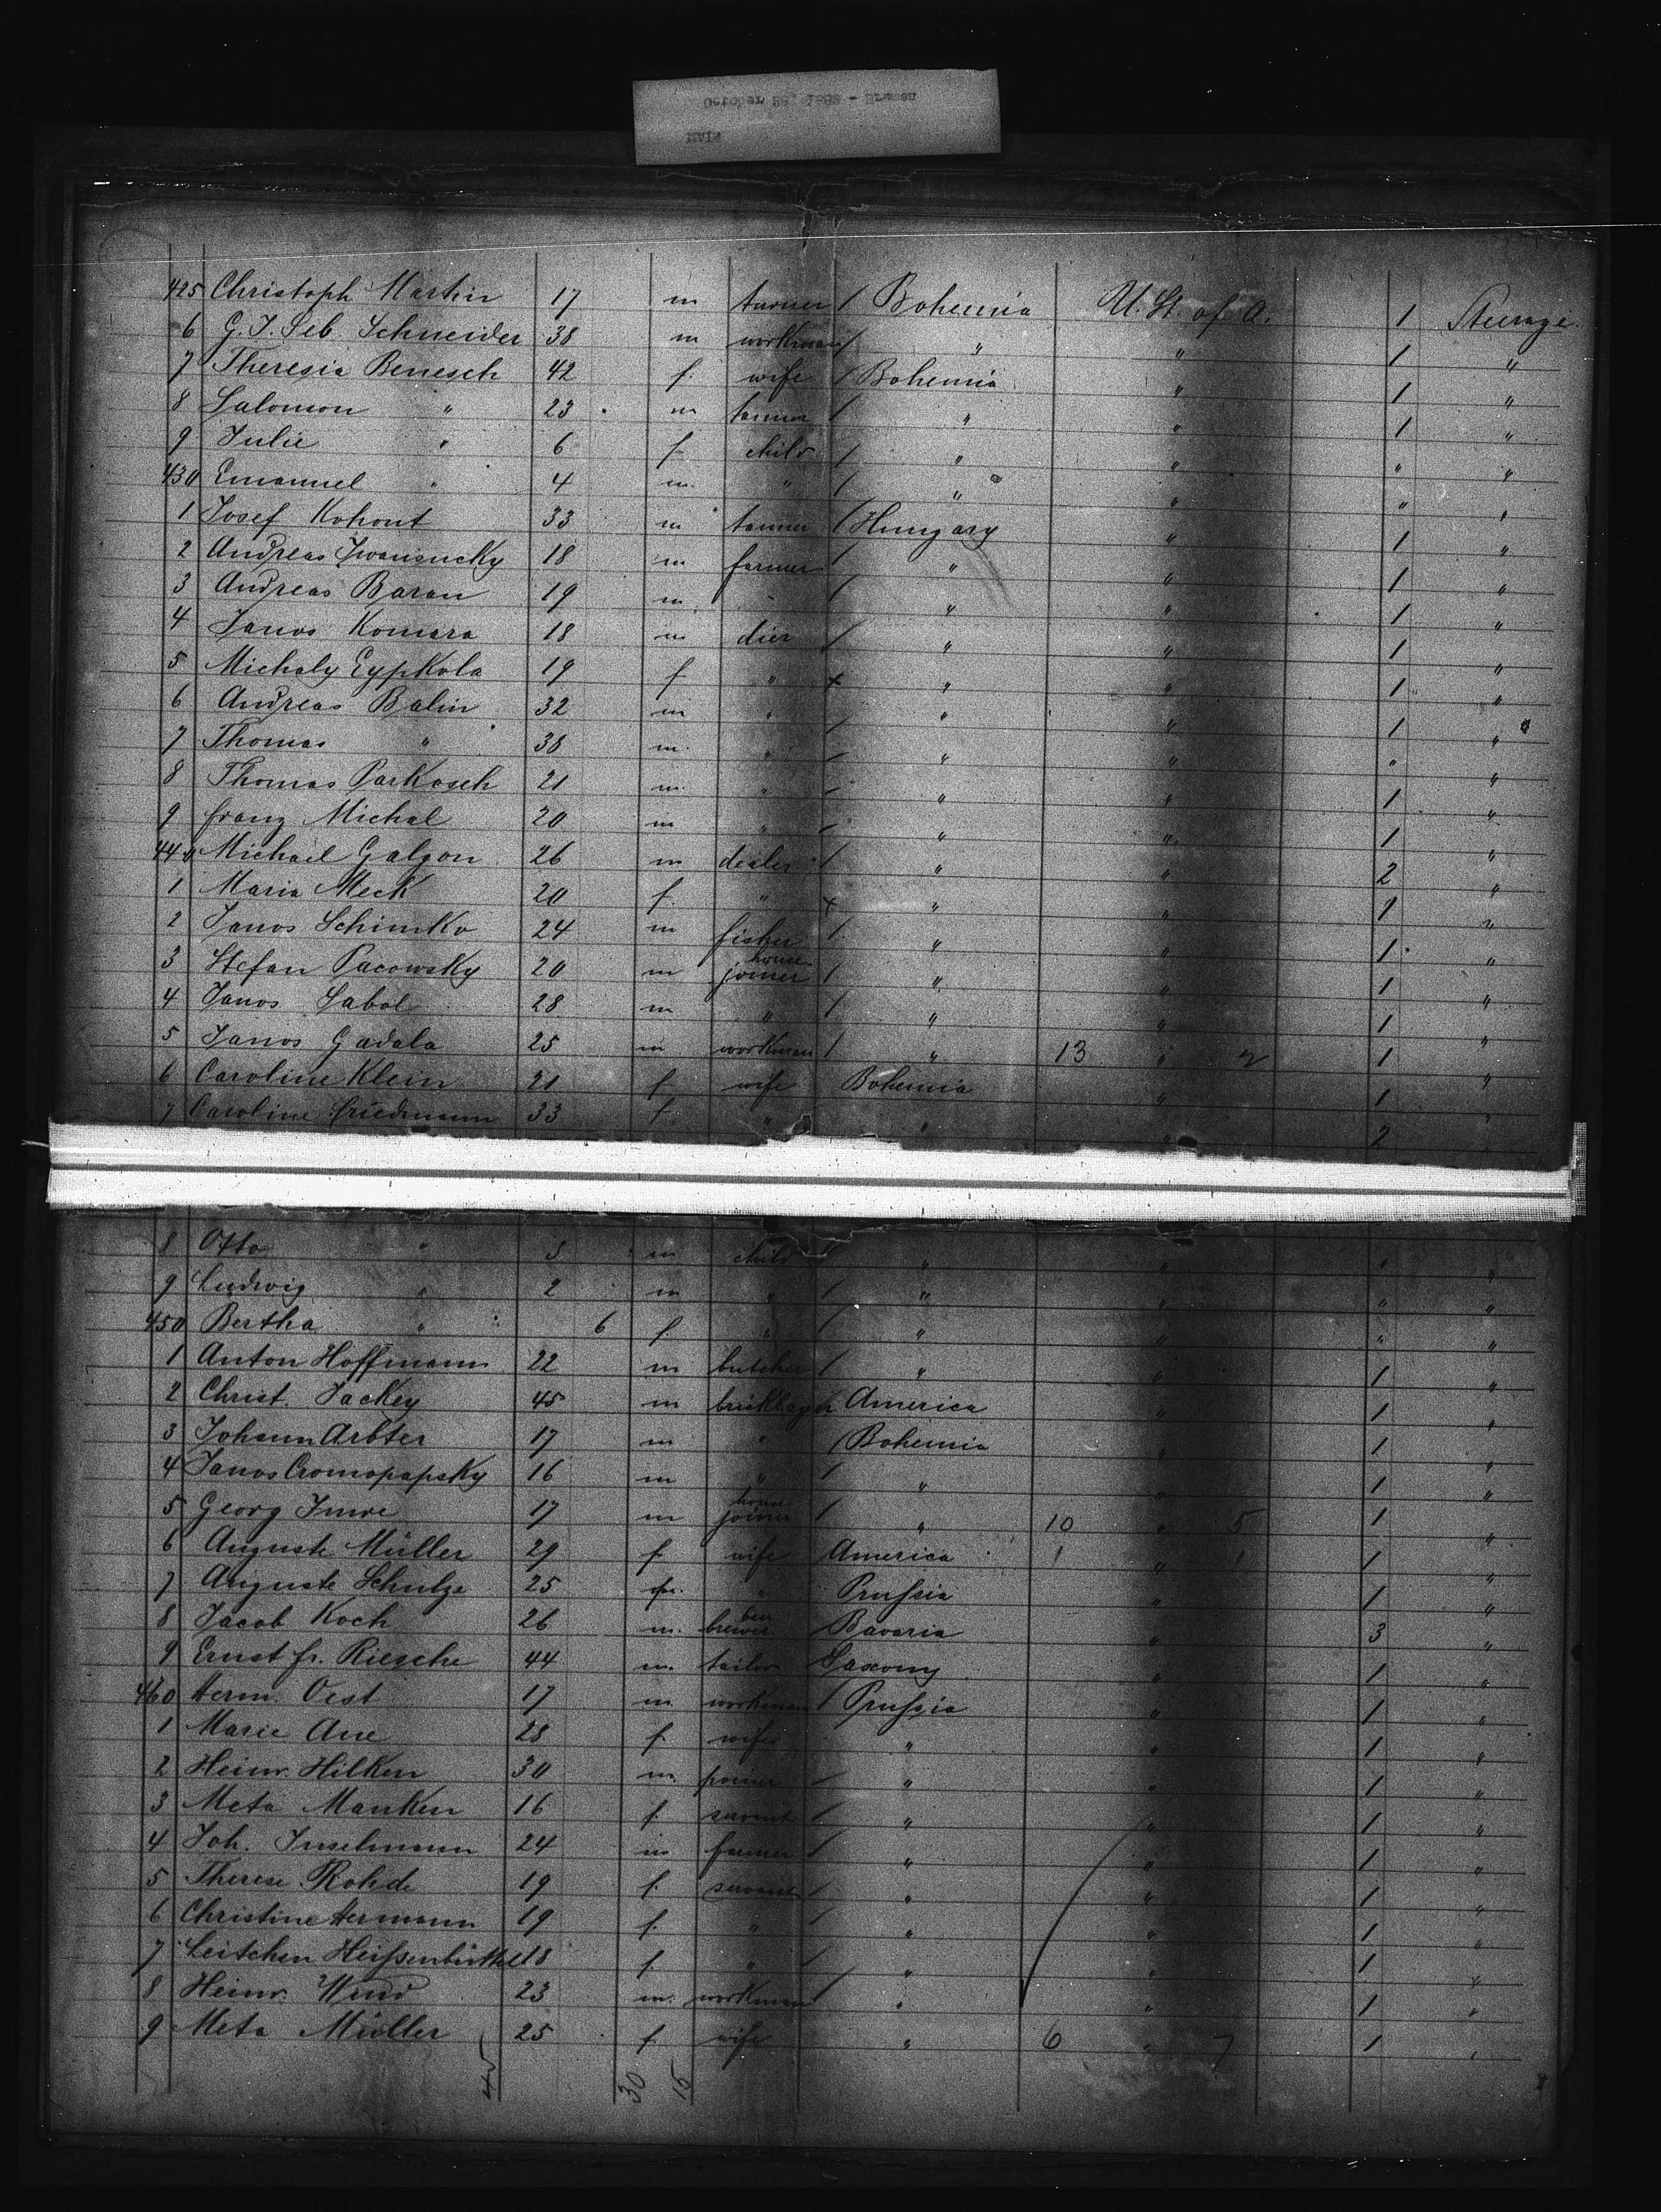 October 26, 1882 - Bremen
MAIN
425 Christoph Martin 17 m turner / Bohemia U. St. of A. 1 Steerage.
6 G. J. Seb. Schneider 38 m workman / " " 1 "
7 Theresia Benesch 42 f. wife / Bohemia " 1 "
8 Salomon " 23 m tanner / " " 1 "
9 Julie " 6 f child / " " " "
430 Emanuel " 4 m. " / " " " "
1 Josef Kohout 33 m tanner / Hungary " 1 "
2 Andreas Iwansucky 18 m farmer / " " 1 "
3 Andreas Baran 19 m. " / " " 1 "
4 Janos Komara 18 m dier / " " 1 "
5 Michaly Eypkola 19 f " x " " 1 "
6 Andreas Balin 32 m " / " " 1 "
7 Thomas " 38 m. " / " " " "
8 Thomas Parkosch 21 m. " / " " 1 "
9 Franz Michal 20 m " / " " 1 "
440 Michael Galgon 26 m dealer / " " 2 "
1 Maria Meck 20 f. " x " " 1 "
2 Janos Schimko 24 m fisher / " " 1 "
3 Stefan Pacowsky 20 m house joiner / " " 1 "
4 Janos Sabol 28 m " / " " 1 "
5 Janos Gadala 25 m workman / " 13 " 2 1 "
6 Caroline Klein 21 f wife Bohemia " 1 "
7 Caroline Friedmann 33 f " " " 2 "
8 Otto " 3 m child / " " " "
9 Ludwig " 2 m " / " " " "
450 Bertha " 6 f " / " " " "
1 Anton Hoffmann 22 m butcher / " " 1 "
2 Christ. Jackey 45 m bricklayer America " 1 "
3 Johann Arbter 17 m " / Bohemia " 1 "
4 Janos Cromopapsky 16 m " / " " 1 "
5 Georg Imre 17 m house joiner / " 10 " 5 1 "
6 Auguste Müller 29 f. wife America 1 " 1 1 "
7 Auguste Schulze 25 f. " Prussia " 1 "
8 Jacob Koch 26 m. beer brewer Bavaria " 3 "
9 Ernst Fr. Riesche 44 m. tailor Saxony " 1 "
460 Herm. Oest 17 m. workman / Prussia " 1 "
1 Marie Aue 28 f. wife " " 1 "
2 Heinr. Hilken 30 m. / " " 1 "
3 Meta Manken 16 f. servant / " " 1 "
4 Joh. Inselmann 24 m farmer / " " 1 "
5 Therese Rohde 19 f. servant / " " 1 "
6 Christine Hermann 19 f. " / " " 1 "
7 Leitchen Heissenbüttel 18 f " / " " 1 "
8 Heinr. Wind 23 m. workman / " " 1 "
9 Meta Müller 25 f. wife " 6 " 7 1 "
45 30 15